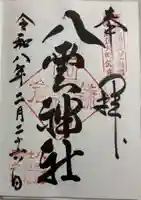 奉拝
八雲神社
令和八年二月二十六日